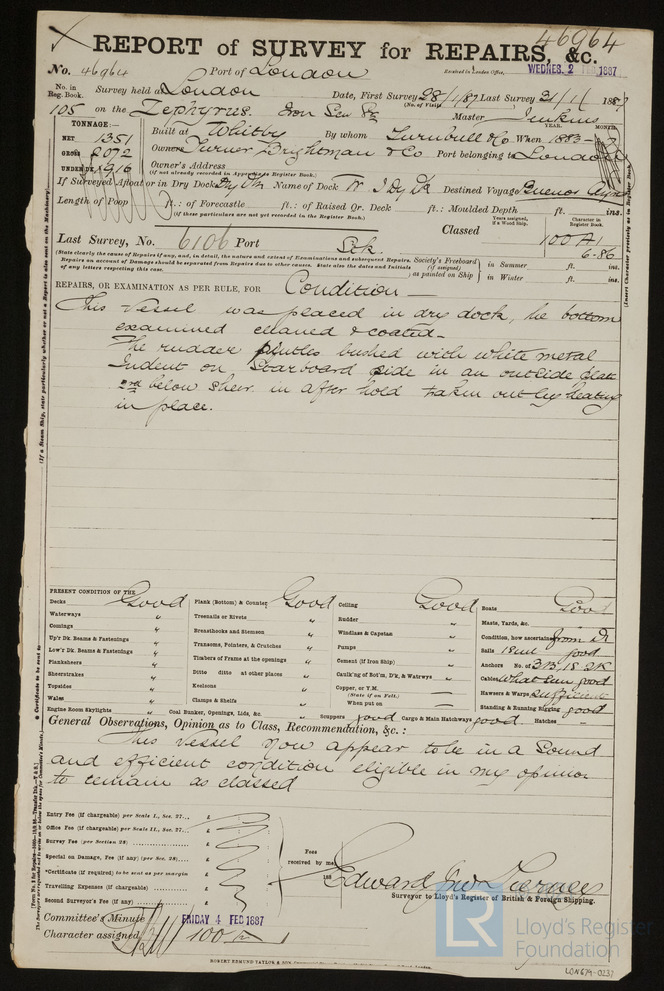 46964
REPORT of SURVEY for REPAIRS, &c.
No. 46964 Port of London Received in London Office, WEDNES. 2 FEB 1887
No. in Reg. Book. Survey held at London Date, First Survey 28/1/87 Last Survey 31/1/1887
(No. of Visits)
105 on the Zephyrus. Iron Scw Master Jenkins
TONNAGE:— YEAR. MONTH.
NET 1351 Built at Whitby By whom Turnbull & Co When 1883-7
GROSS 2072 Owners Turner Brightman & Co Port belonging to London
UNDER DK 1916 Owner's Address
(if not already recorded in Appendix to Register Book.)
If Surveyed Afloat or in Dry Dock Dry Dk Name of Dock W I Dy Dk Destined Voyage Buenos Ayres
Length of Poop ft.: of Forecastle ft.: of Raised Qr. Deck ft.: Moulded Depth ft. ins.
(if these particulars are not yet recorded in the Register Book.)
Years assigned, if a Wood Ship. Character in Register Book.
Last Survey, No. 6106 Port Sck. Classed 100 A1
6-86
(State clearly the cause of Repairs if any, and, in detail, the nature and extent of Examinations and subsequent Repairs.
Repairs on account of Damage should be separated from Repairs due to other causes. State also the dates and Initials
of any letters respecting this case.
Society's Freeboard (if assigned) as painted on Ship in Summer ft. ins.
in Winter ft. ins.
REPAIRS, OR EXAMINATION AS PER RULE, FOR Condition
This Vessel was placed in dry dock, the bottom
examined cleaned & coated
The rudder pintles bushed with white metal
Indent on Starboard side in an outside plate
3rd below sheer in after hold taken out by heating
in place.
PRESENT CONDITION OF THE
Decks Good Plank (Bottom) & Counter Good Ceiling Good Boats Good
Waterways " Treenails or Rivets " Rudder " Masts, Yards, &c.
Comings " Breasthooks and Stemson " Windlass & Capstan " Condition, how ascertained from Dk
Up'r Dk. Beams & Fastenings " Transoms, Pointers, & Crutches " Pumps " Sails good
Low'r Dk. Beams & Fastenings " Timbers of Frame at the openings " Cement (if Iron Ship) " Anchors No. of 3B, 1S 2K
Planksheers " Ditto ditto at other places " Caulk'g of Bot'm, D'k, & Watrwys " Cables What seen good
Sheerstrakes " Keelsons " Copper, or Y.M. Hawsers & Warps sufficient
Topsides " Clamps & Shelfs " (State if on Felt.) Standing & Running Rigging good
Wales " When put on
Engine Room Skylights " Coal Bunker, Openings, Lids, &c. " Scuppers good Cargo & Main Hatchways good. Hatches "
General Observations, Opinion as to Class, Recommendation, &c.:
This Vessel now appear to be in a Sound
and efficient condition eligible in my opinion
to remain as classed
Entry Fee (if chargeable) per Scale I., Sec. 27... £
Office Fee (if chargeable) per Scale II., Sec. 27... £
Survey Fee (per Section 28) £
Special on Damage, Fee (if any) (per Sec. 28).... £
*Certificate (if required) to be sent as per margin
Travelling Expenses (if chargeable) £
Second Surveyor's Fee (if any) £
Fees received by me, 188
Edward Jno Tierney
Surveyor to Lloyd's Register of British & Foreign Shipping.
Committee's Minute FRIDAY 4 FEB 1887
Character assigned 100 A
LR Lloyd's Register Foundation
ROBERT EDMUND TAYLOR & SON
LON679-0237